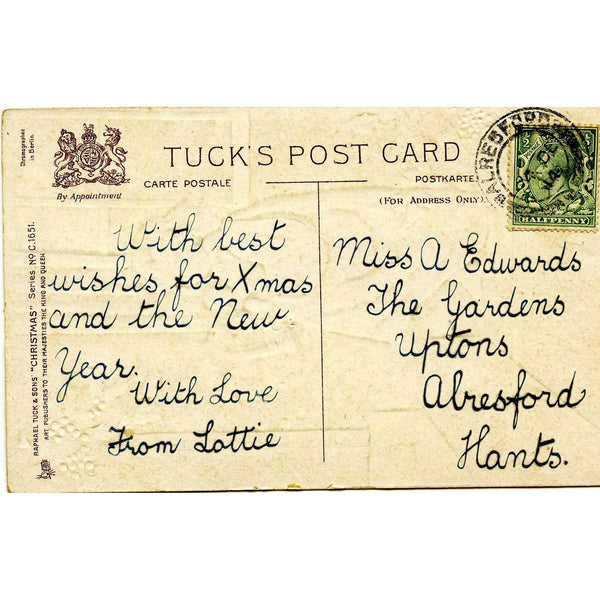 Chromographed
in Berlin.
By Appointment
TUCK'S POST CARD
CARTE POSTALE
POSTKARTE
(FOR ADDRESS ONLY)
RAPHAEL TUCK & SONS "CHRISTMAS" Series Nº C.1651.
ART PUBLISHERS TO THEIR MAJESTIES THE KING AND QUEEN
With best
wishes for Xmas
and the New
Year.
With Love
From Lottie
Miss A Edwards
The Gardens
Uptons
Alresford
Hants.
ALRESFORD
HALFPENNY